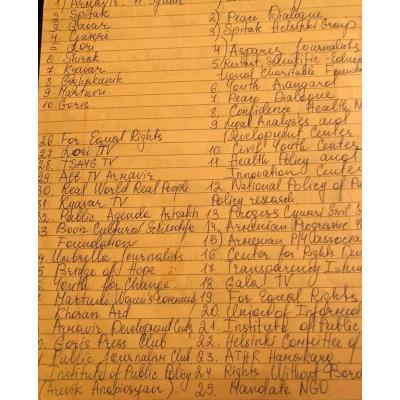 1) Armavir.
2 Spitak
3 Gavar
4 Gumri
5 Lori
6. Shirak
7 Kvavar
8
9 Martuni
10 Goris
26 For Equal Rights
27 Lori TV
28. TSAYG TV
29 ALT TV Armavir
30. Real World Real People
31 Kyavar TV
32 Public Agenda Artsakh
33 Boon Cultural Scientific
Foundation
Umbrella Journalists
Bridge of Hope
Youth for Change.
Martuni Women's
Khoran Ard
Armavir Development Cente
Goris Press Club
Public Journalism Club
Institute of Public Policy
(Arevik Anapiosyan)
2) Peace Dialogue
3) Spitak Helsinki Group
4) Asparez Journalists
5) Restart, Scientific-
tional Charitable Founda
6 Youth
7 Peace Dialogue
8 Confidence Health N
9 Legal Analyses and
Development Center
10 Civil Youth Center
11 Health Policy and
Innovation Center
12 National Policy of
Policy research
13 Progres Gyumri Civil S
14 Armenian Progressive Y
15) Armenian P/Y associa
16 Center for Rights Deve
17 Transparency Interna
18 Gala TV
19 For Equal Rights
20 Union of Informed
21. Institute of Public
22. Helsinki Committee of
23. ATHK
24 Rights Without Bord
25. Mandate NGO